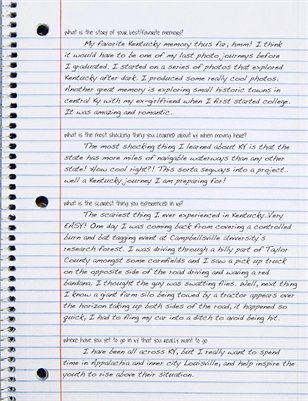 what is the story of your best/favorite memory?
My favorite Kentucky memory thus far, hmm! I think
it would have to be one of my last photo journeys before
I graduated. I started on a series of photos that explored
Kentucky after dark. I produced some really cool photos.
Another great memory is exploring small historic towns in
central Ky with my ex-girlfriend when I first started college.
It was amazing and romantic.
what is the most shocking thing you learned about ky when moving here?
The most shocking thing I learned about KY is that the
state has more miles of navigable waterways than any other
state! How cool right?! This sorta segways into a project..
well a Kentucky journey I am preparing for!
what is the scariest thing you experienced in ky?
The scariest thing I ever experienced in Kentucky..Very
EASY! One day I was coming back from covering a controlled
burn and bat tagging event at Campbellsville University's
research forest. I was driving through a hilly part of Taylor
County amongst some cornfields and I saw a pick up truck
on the opposite side of the road driving and waving a red
bandana. I thought the guy was swatting flies. Well, next thing
I know a giant farm silo being towed by a tractor appears over
the horizon taking up both sides of the road, it happened so
quick, I had to fling my car into a ditch to avoid being hit.
where have you yet to go in ky that you really want to go
I have been all across KY, but I really want to spend
time in Appalachia and inner city Louisville, and help inspire the
youth to rise above their situation.